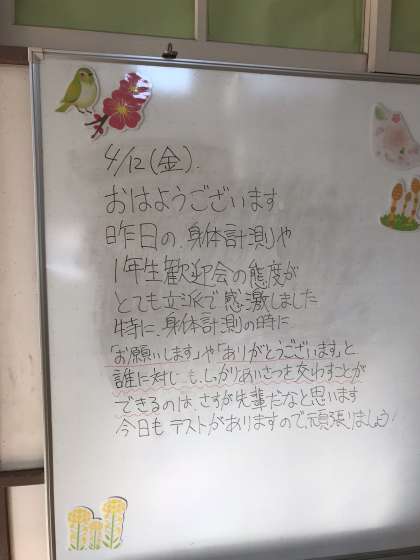 4/12(金).
おはようございます
昨日の、身体計測や
1年生歓迎会の態度が
とても立派で感激しました
特に、身体計測の時に
「お願いします」や「ありがとうございます」と
誰に対しも、しっかりあいさつを交わすことが
できるのは、さすが先輩だなと思います
今日もテストがありますので、頑張りましょう!